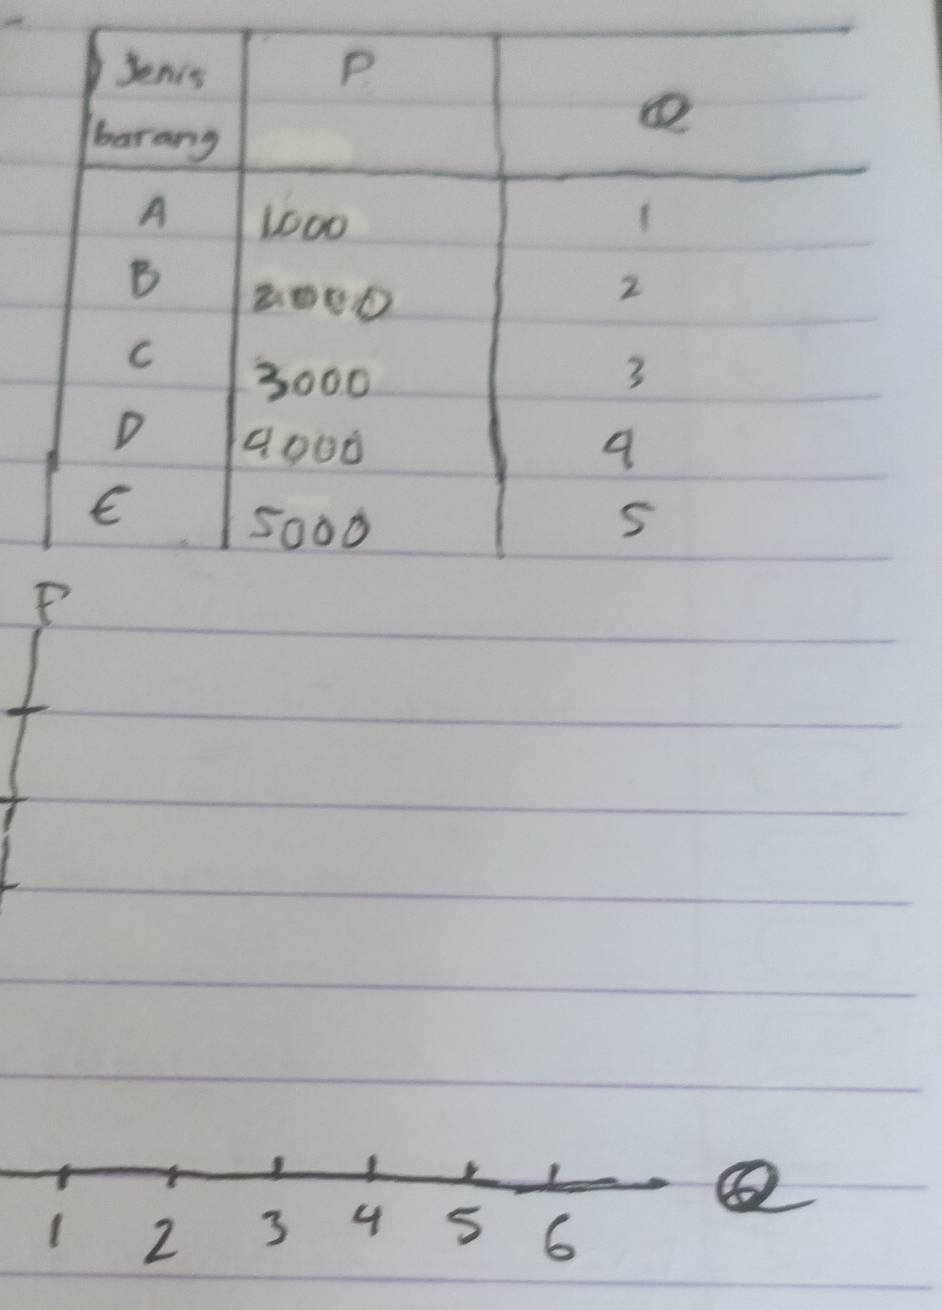 Jenis barang P Q
A 1000 1
B 2.000 2
C 3000 3
D 4000 4
E 5000 5
P
Q
1 2 3 4 5 6